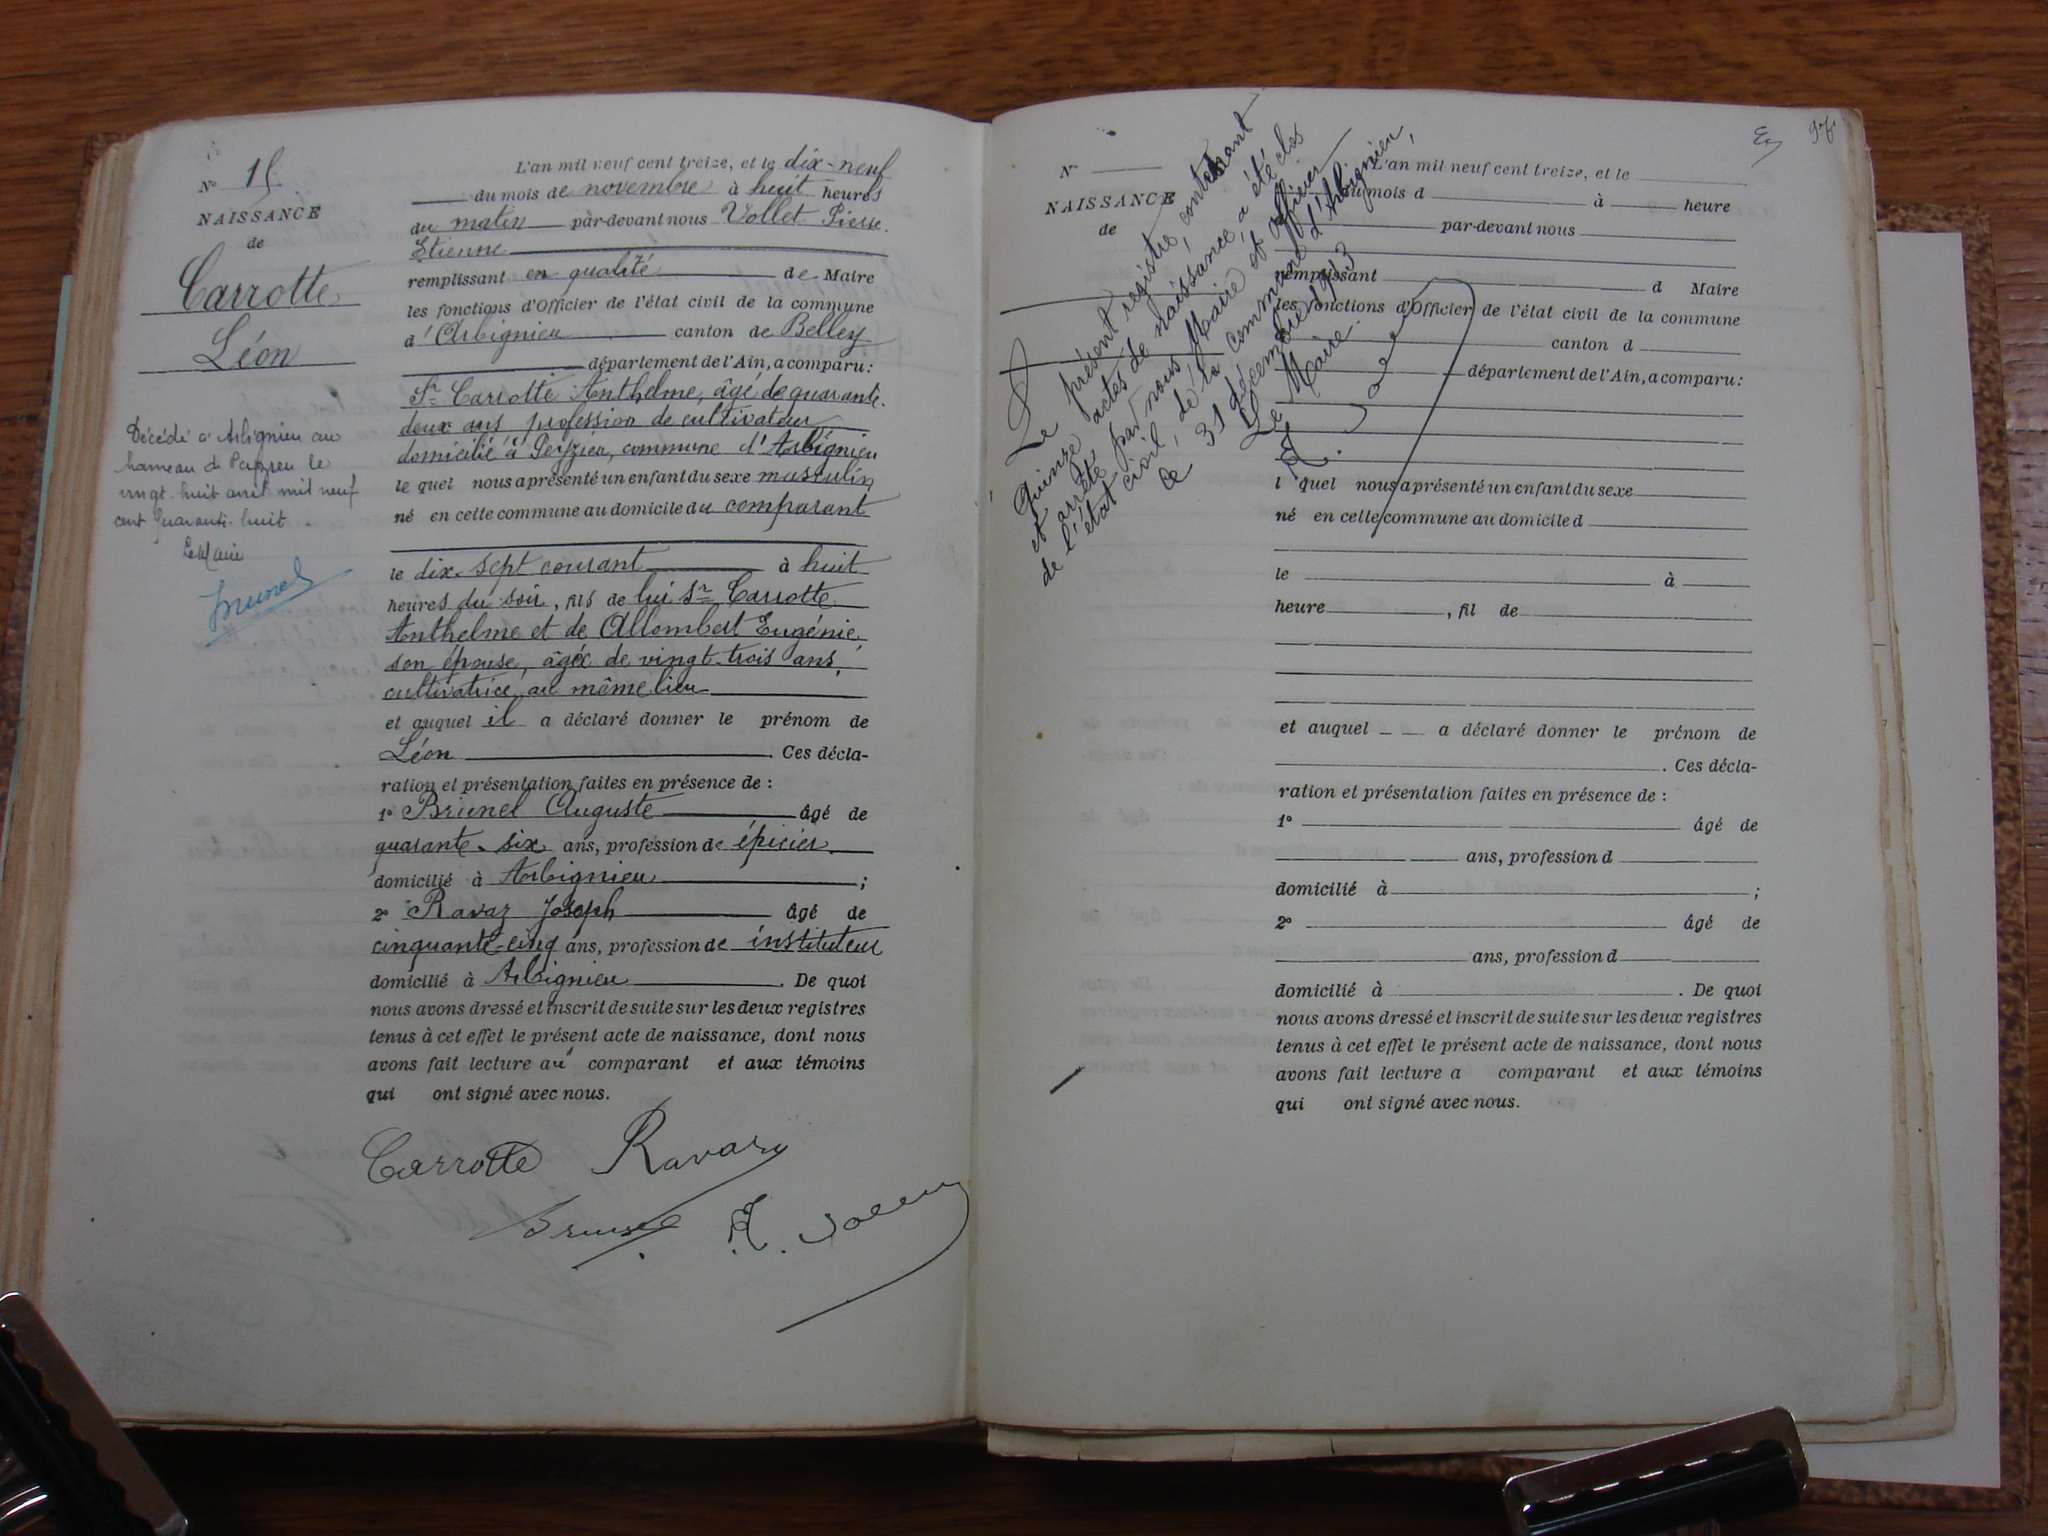 N° 15
NAISSANCE
de
Carrotte
Léon
Décédé à Arbignieu au
hameau de Peyzieu le
vingt-huit avril mil neuf
cent quarante-huit.
Le Maire
Brunel
L'an mil neuf cent treize, et le dix-neuf
du mois de novembre à huit heures
du matin par-devant nous Vollet Pierre
Etienne
remplissant en qualité de Maire
les fonctions d'Officier de l'état civil de la commune
d'Arbignieu canton de Belley
département de l'Ain, a comparu:
Sr Carrotte Anthelme, âgé de quarante-
deux ans, profession de cultivateur
domicilié à Peyzieu, commune d'Arbignieu
le quel nous a présenté un enfant du sexe masculin
né en cette commune au domicile du comparant
le dix-sept courant à huit
heures du soir, fils de lui Sr Carrotte
Anthelme et de Allombert Eugénie
son épouse, âgée de vingt-trois ans,
cultivatrice, au même lieu
et auquel il a déclaré donner le prénom de
Léon. Ces décla-
ration et présentation faites en présence de :
1° Brunel Auguste âgé de
quarante-six ans, profession de épicier
domicilié à Arbignieu ;
2° Ravaz Joseph âgé de
cinquante-cinq ans, profession de instituteur
domicilié à Arbignieu. De quoi
nous avons dressé et inscrit de suite sur les deux registres
tenus à cet effet le présent acte de naissance, dont nous
avons fait lecture au comparant et aux témoins
qui ont signé avec nous.
Carrotte Ravaz
Brunel E. Vollet
N°
NAISSANCE
de
Le présent registre, contenant
quinze actes de naissance a été clos
et arrêté par nous Maire et officier
de l'état civil, de la commune d'Arbignieu,
le 31 décembre 1913
Le Maire.
E. Vollet
L'an mil neuf cent treize, et le
du mois d à heure
par-devant nous
remplissant d Maire
les fonctions d'Officier de l'état civil de la commune
d canton d
département de l'Ain, a comparu:
l quel nous a présenté un enfant du sexe
né en cette commune au domicile d
le à
heure , fil de
et auquel a déclaré donner le prénom de
. Ces décla-
ration et présentation faites en présence de :
1° âgé de
ans, profession d
domicilié à ;
2° âgé de
ans, profession d
domicilié à . De quoi
nous avons dressé et inscrit de suite sur les deux registres
tenus à cet effet le présent acte de naissance, dont nous
avons fait lecture a comparant et aux témoins
qui ont signé avec nous.